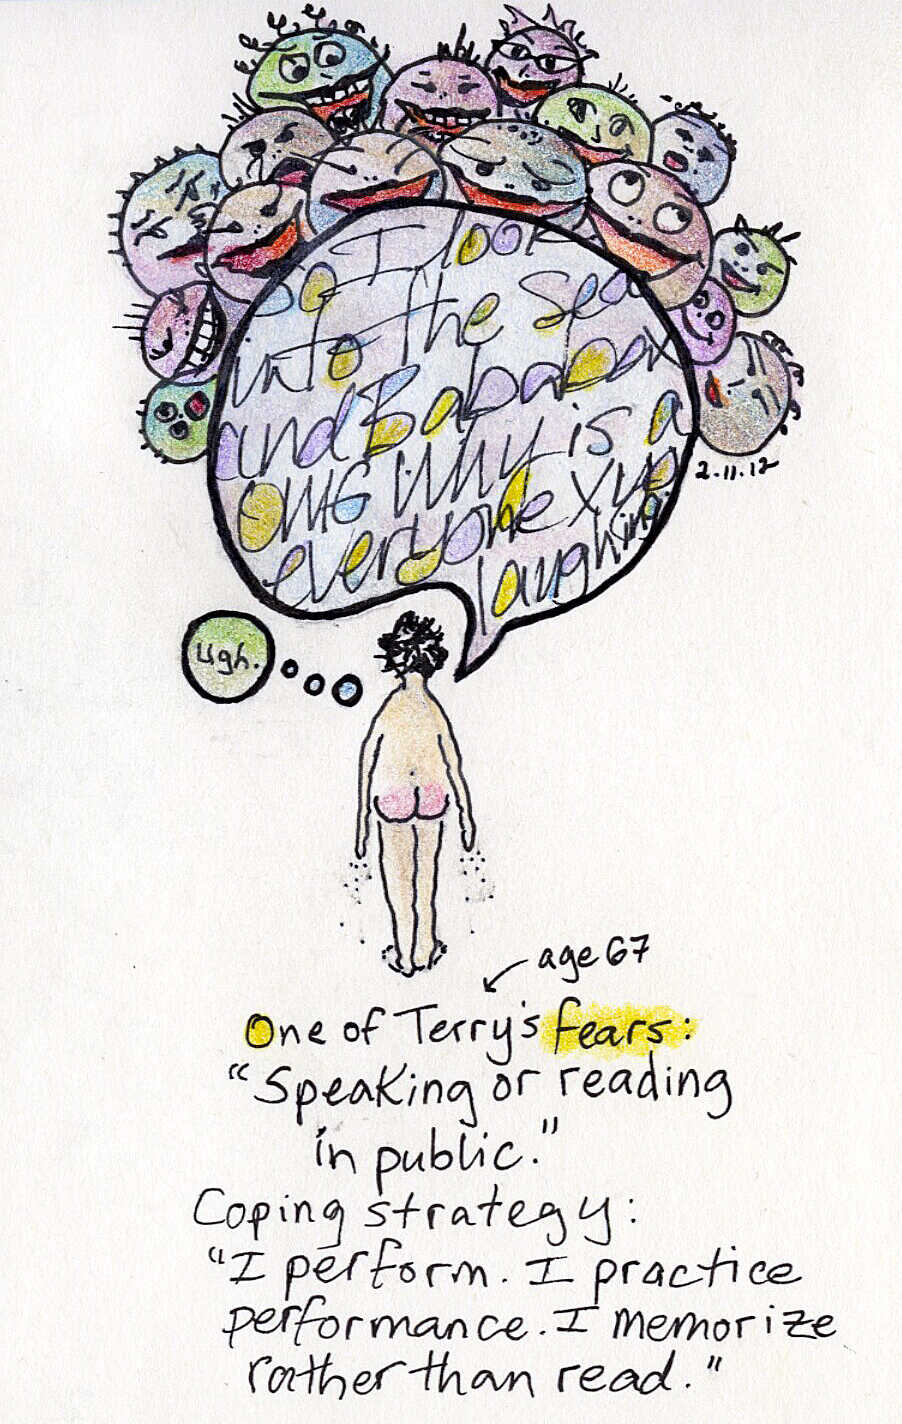 So I look
into the sea
and Bababa
OMG Why is
everyone
laughing
2.11.12
ugh.
age 67
One of Terry's fears:
"Speaking or reading
in public."
Coping strategy:
"I perform. I practice
performance. I memorize
rather than read."